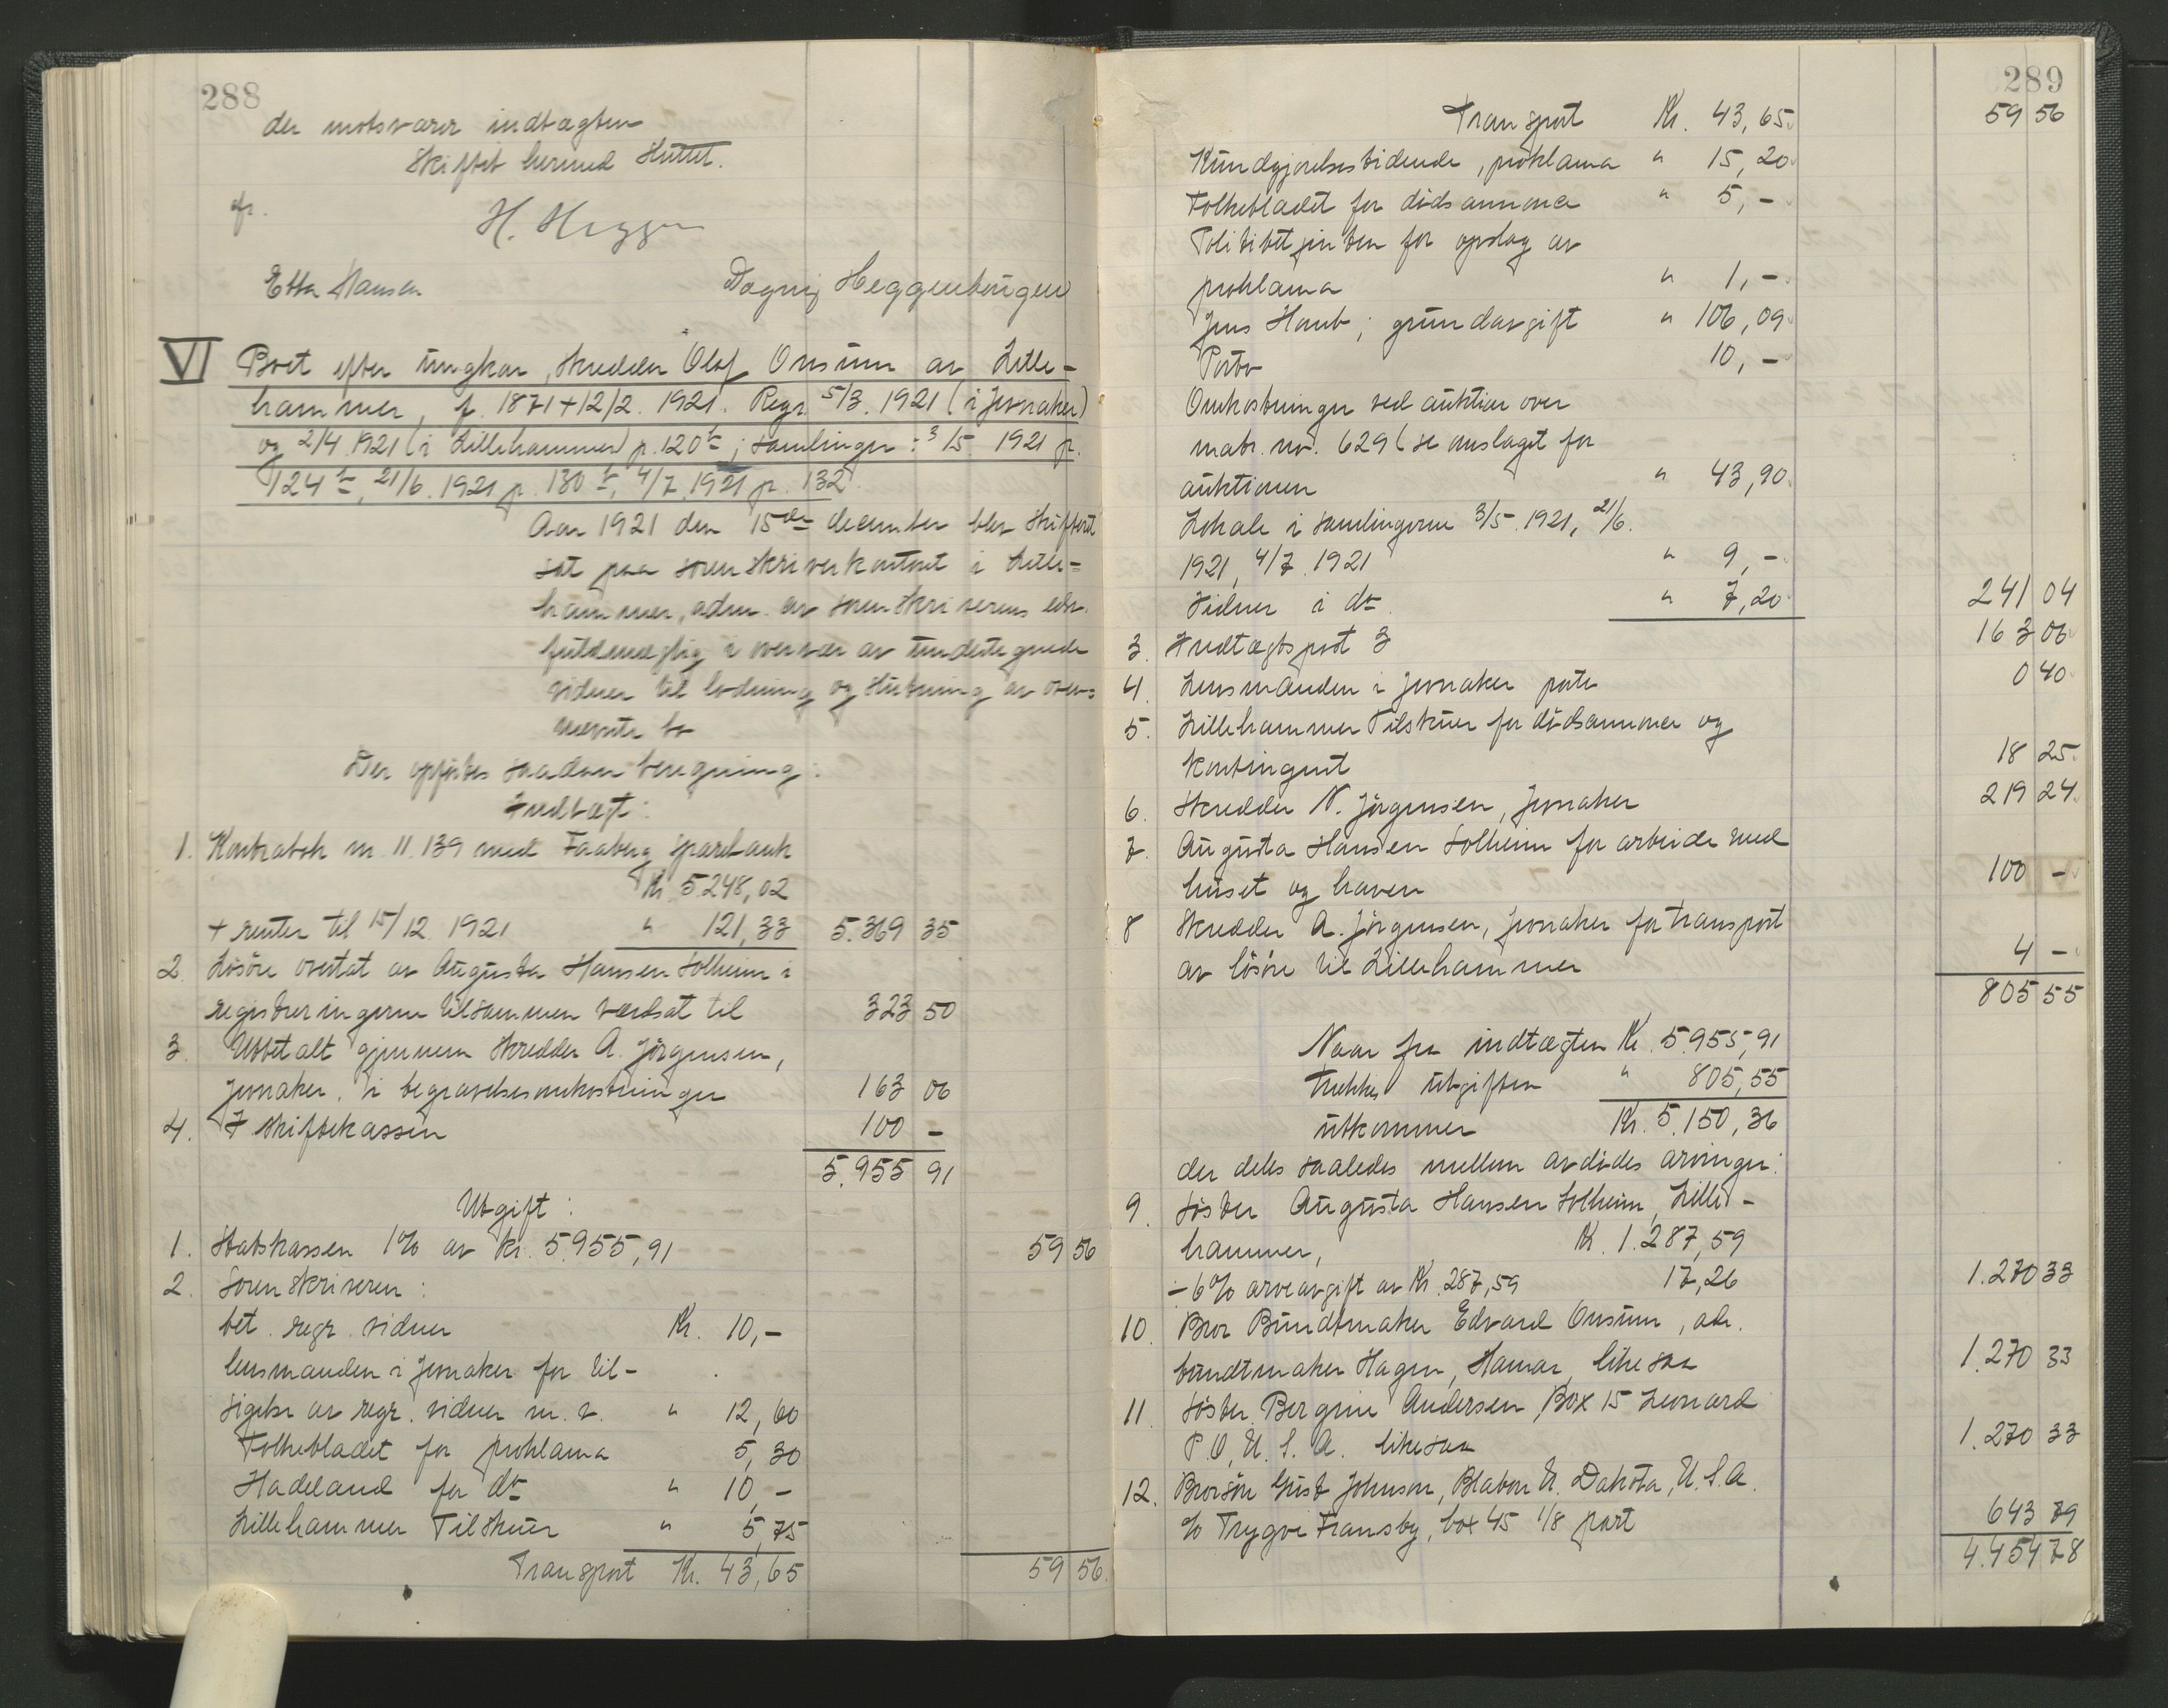 288
der motsvarer indtægten
Skiftet hermed sluttet.
H. Heggen
Etta Hansen Dagny Heggenhougen
VI Boet efter ungkar, skredder Olaf Onsum av Lille-
hammer, f. 1871 + 12/2. 1921. Regr. 5/3. 1921 (i Jevnaker)
og 2/4 1921 (i Lillehammer) p. 120b; samlinger: 3/5 1921 p.
124b, 21/6. 1921 p. 130b, 4/7. 1921 p. 132
Aar 1921 den 15de december blev skifteret
sat paa sorenskriverkontoret i Lille-
hammer, adm. av sorenskriverens edsv.
fuldmægtig i overvær av undertegnede
vidner til lodning og slutning av oven-
nævnte bo
Der opførtes saadan beregning:
Indtægt:
1. Kontrabok nr. 11.139 med Faaberg sparebank
Kr. 5.248,02
+ renter til 15/12 1921 " 121,33 5.369 35
2. Løsøre overtat av Augusta Hansen Solheim i
registreringerne tilsammen værdsat til 323 50
3. Utbetalt gjennem skredder A. Jörgensen,
Jevnaker i begravelsesomkostninger 163 06
4. I skiftekassen 100 -
5.955 91
Utgift:
1. Statskassen 1% av kr. 5.955,91 59 56
2. Sorenskriveren:
bet. regr. vidner Kr. 10,-
lensmanden i Jevnaker for til-
sigelse av regr. vidner m. v. " 12,60
Folkebladet for proklama 5,30
Hadeland for do " 10,-
Lillehammer Tilskuer " 5,75
Transport Kr. 43,65 59 56
289
Transport Kr. 43,65 59 56
Kundgjørelsestidende, proklama " 15,20
Folkebladet for dödsannonce " 5,-
Politibetjenten for opslag av
proklama " 1,-
Jens Haut; grundavgift " 106,09
Porto 10,-
Omkostninger ved auktion over
matr. no. 629 (se omslaget for
auktionen " 43,90
Lokale i samlingerne 3/5. 1921, 21/6.
1921, 4/7. 1921 " 9,-
Vidner i do. " 7,20 241 04
3. Indtægtspost 3 163 06
4. Lensmanden i Jevnaker porto 0 40
5. Lillehammer Tilskuer for dödsannonce og
kontingent 18 25
6. Skredder N. Jörgensen, Jevnaker 219 24
7. Augusta Hansen Solheim for arbeide med
huset og haven 100 -
8 Skredder A. Jörgensen, Jevnaker for transport
av lösöre til Lillehammer 4 -
805 55
Naar fra indtægten Kr. 5.955,91
trækkes utgiften " 805,55
utkommer Kr. 5.150,36
der deles saaledes mellem avdödes arvinger:
9. Söster Augusta Hansen Solheim, Lille-
hammer, Kr. 1.287,59
- 6% arveavgift av Kr. 287,59 17,26 1.270 33
10. Bror Bundtmaker Edvard Onsum, adr.
bundtmaker Hagen, Hamar, likesaa 1.270 33
11. Söster Bergine Andersen, Box 15 Leonard
P.O, U.S.A. likesaa 1.270 33
12. Brorsön Gust Johnson, Blabon N. Dakota, U.S.A.
c/o Trygve Fransby, box 45 1/8 part 643 79
4.454 78